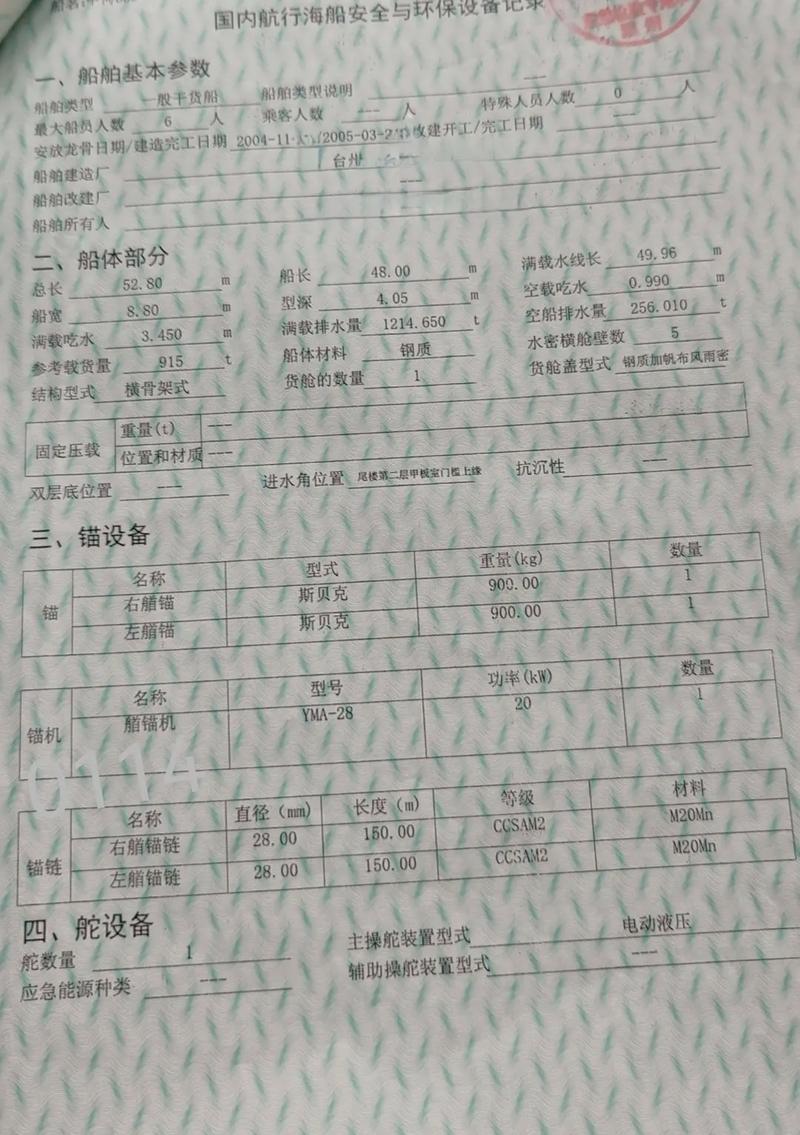 船名
国内航行海船安全与环保设备记录
一、船舶基本参数
船舶类型 一般干货船 船舶类型说明 ---
最大船员人数 6 人 乘客人数 --- 人 特殊人员人数 0 人
安放龙骨日期/建造完工日期 2004-11 /2005-03-2 改建开工/完工日期 ---
船舶建造厂 台州
船舶改建厂 ---
船舶所有人
二、船体部分
总长 52.80 m 船长 48.00 m 满载水线长 49.96 m
船宽 8.80 m 型深 4.05 m 空载吃水 0.990 m
满载吃水 3.450 m 满载排水量 1214.650 t 空船排水量 256.010 t
参考载货量 915 t 船体材料 钢质 水密横舱壁数 5
结构型式 横骨架式 货舱的数量 1 货舱盖型式 钢质加帆布风雨密
固定压载 重量(t) ---
位置和材质 ---
双层底位置 --- 进水角位置 尾楼第二层甲板室门槛上缘 抗沉性 ---
三、锚设备
锚 名称 型式 重量(kg) 数量
右艏锚 斯贝克 900.00 1
左艏锚 斯贝克 900.00 1
锚机 名称 型号 功率(kW) 数量
艏锚机 YMA-28 20 1
0114
锚链 名称 直径(mm) 长度(m) 等级 材料
右艏锚链 28.00 150.00 CCSAM2 M20Mn
左艏锚链 28.00 150.00 CCSAM2 M20Mn
四、舵设备
舵数量 1 主操舵装置型式 电动液压
应急能源种类 --- 辅助操舵装置型式 ---